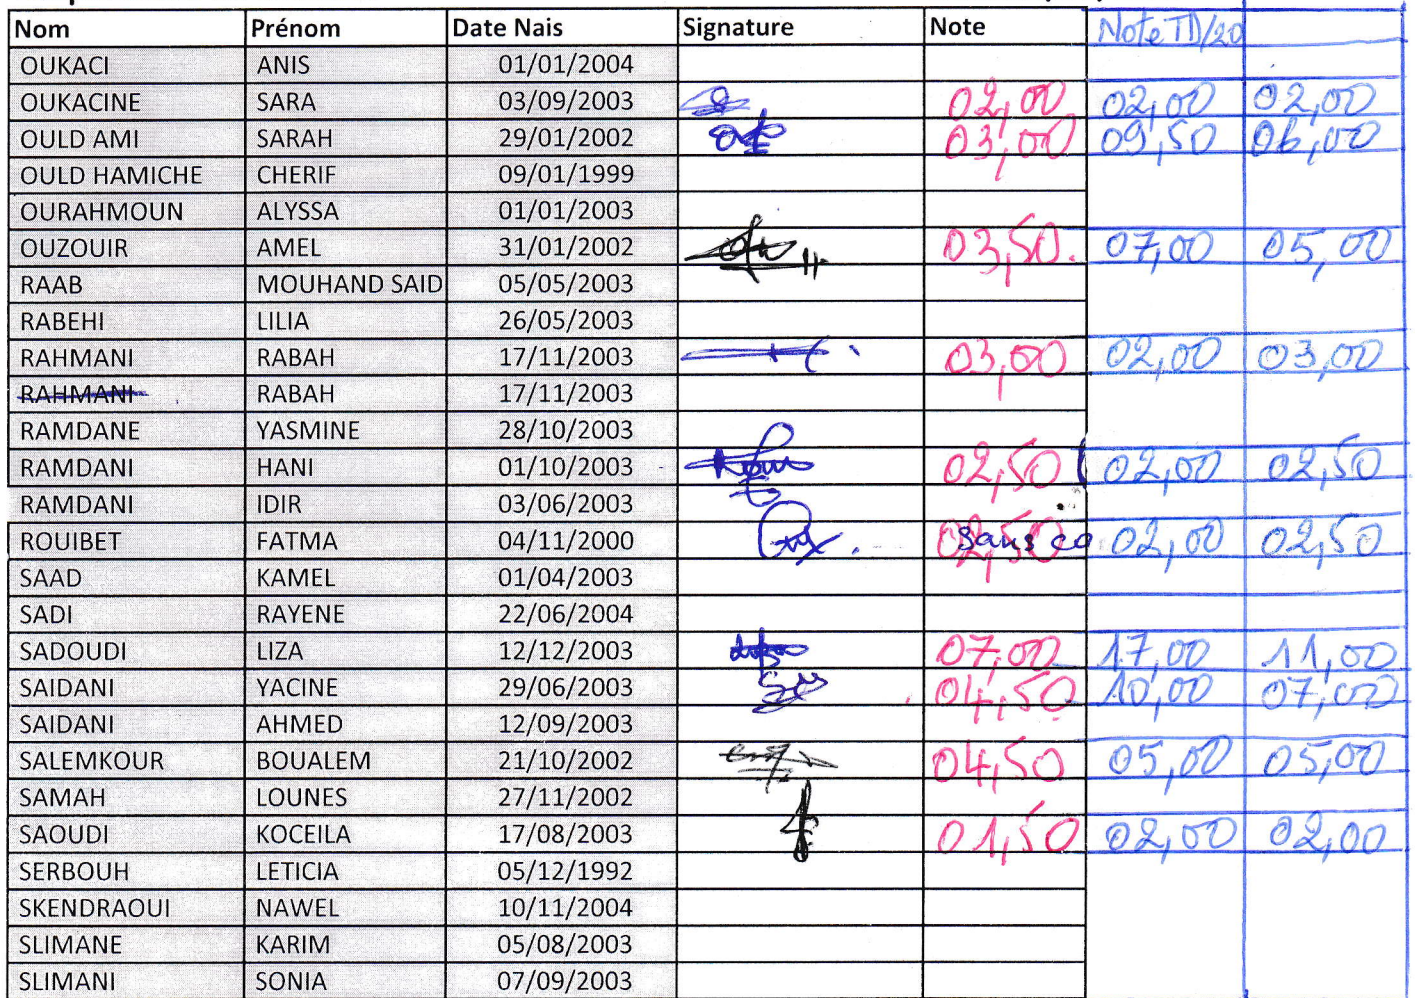 Nom Prénom Date Nais Signature Note Note TD/20
OUKACI ANIS 01/01/2004
OUKACINE SARA 03/09/2003 02,00 02,00 02,00
OULD AMI SARAH 29/01/2002 03,00 09,50 06,00
OULD HAMICHE CHERIF 09/01/1999
OURAHMOUN ALYSSA 01/01/2003
OUZOUIR AMEL 31/01/2002 03,50. 07,00 05,00
RAAB MOUHAND SAID 05/05/2003
RABEHI LILIA 26/05/2003
RAHMANI RABAH 17/11/2003 03,00 02,00 03,00
RAHMANI RABAH 17/11/2003
RAMDANE YASMINE 28/10/2003
RAMDANI HANI 01/10/2003 02,50 02,00 02,50
RAMDANI IDIR 03/06/2003
ROUIBET FATMA 04/11/2000 02,50 sans co 02,00 02,50
SAAD KAMEL 01/04/2003
SADI RAYENE 22/06/2004
SADOUDI LIZA 12/12/2003 07,00 17,00 11,00
SAIDANI YACINE 29/06/2003 04,50 10,00 07,00
SAIDANI AHMED 12/09/2003
SALEMKOUR BOUALEM 21/10/2002 04,50 05,00 05,00
SAMAH LOUNES 27/11/2002
SAOUDI KOCEILA 17/08/2003 01,50 02,00 02,00
SERBOUH LETICIA 05/12/1992
SKENDRAOUI NAWEL 10/11/2004
SLIMANE KARIM 05/08/2003
SLIMANI SONIA 07/09/2003